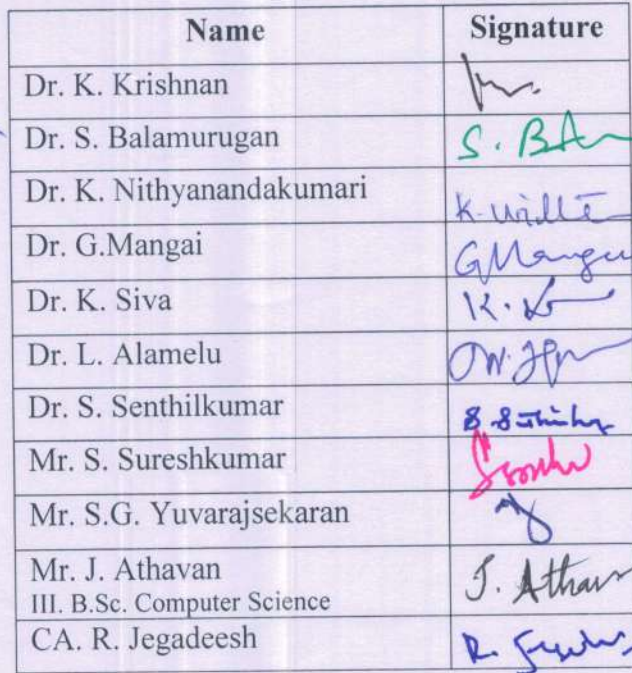 Name Signature
Dr. K. Krishnan
Dr. S. Balamurugan S. BA
Dr. K. Nithyanandakumari
Dr. G.Mangai G Mangai
Dr. K. Siva K.
Dr. L. Alamelu
Dr. S. Senthilkumar
Mr. S. Sureshkumar
Mr. S.G. Yuvarajsekaran
Mr. J. Athavan J. Athavan
III. B.Sc. Computer Science
CA. R. Jegadeesh R.